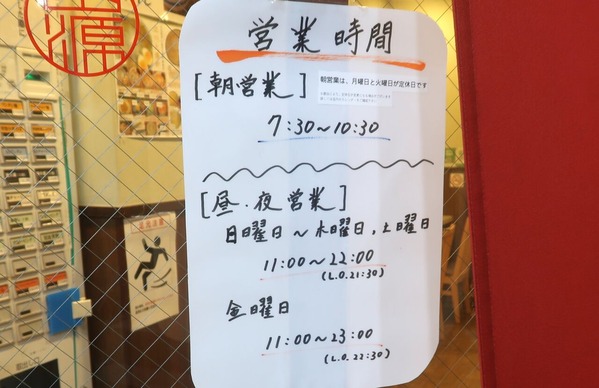 源
営業時間
[朝営業]
朝営業は、月曜日と火曜日が定休日です
7:30〜10:30
[昼・夜営業]
日曜日〜水曜日,土曜日
11:00〜22:00
(L.O.21:30)
金曜日
11:00〜23:00
(L.O.22:30)